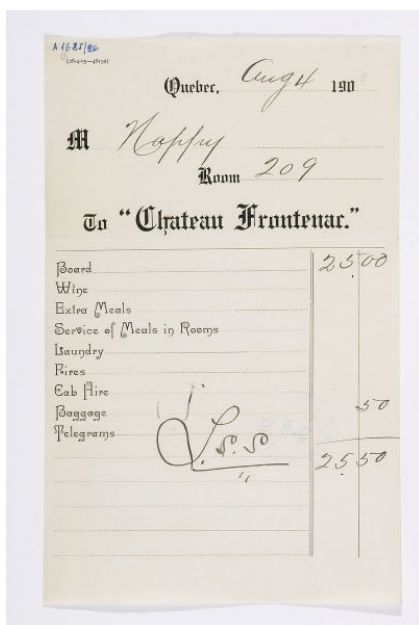 A 1685/86
Quebec, Aug 4 190
M Nappy
Room 209
To “Chateau Frontenac.”
Board 25.00
Wine
Extra Meals
Service of Meals in Rooms
Laundry
Fires
Cab Hire
Baggage 50
Telegrams
25.50